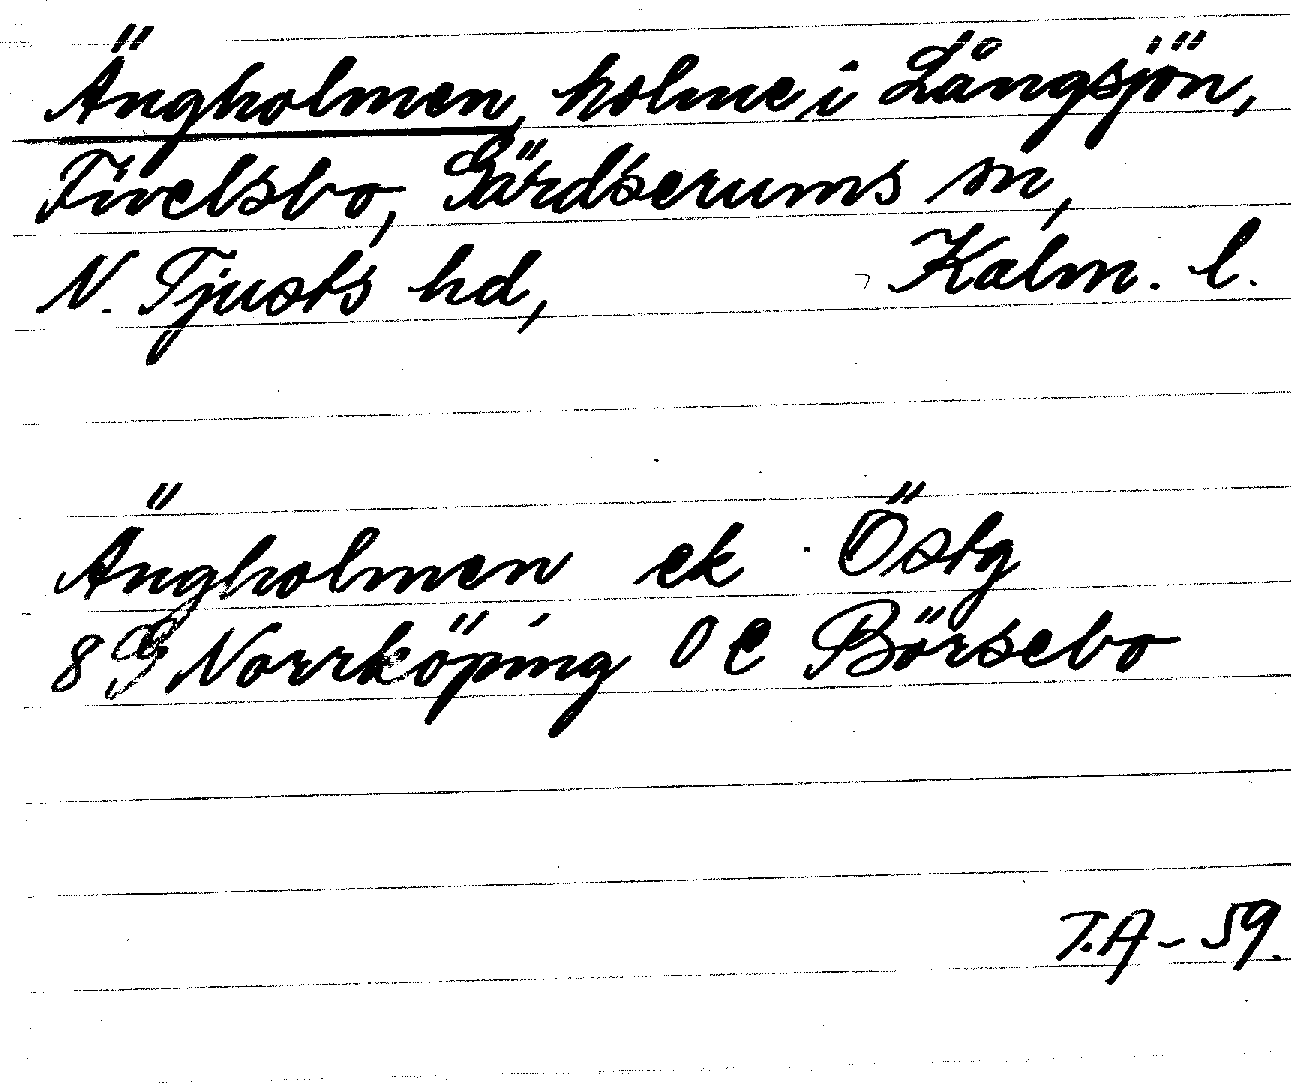 Ängholmen, holme i Långsjön,
Fivelsbo, Gärdserums sn,
N. Tjusts hd, Kalm. l.
Ängholmen ek Östg
8 G Norrköping 0 e Börsebo
T.A - 59.